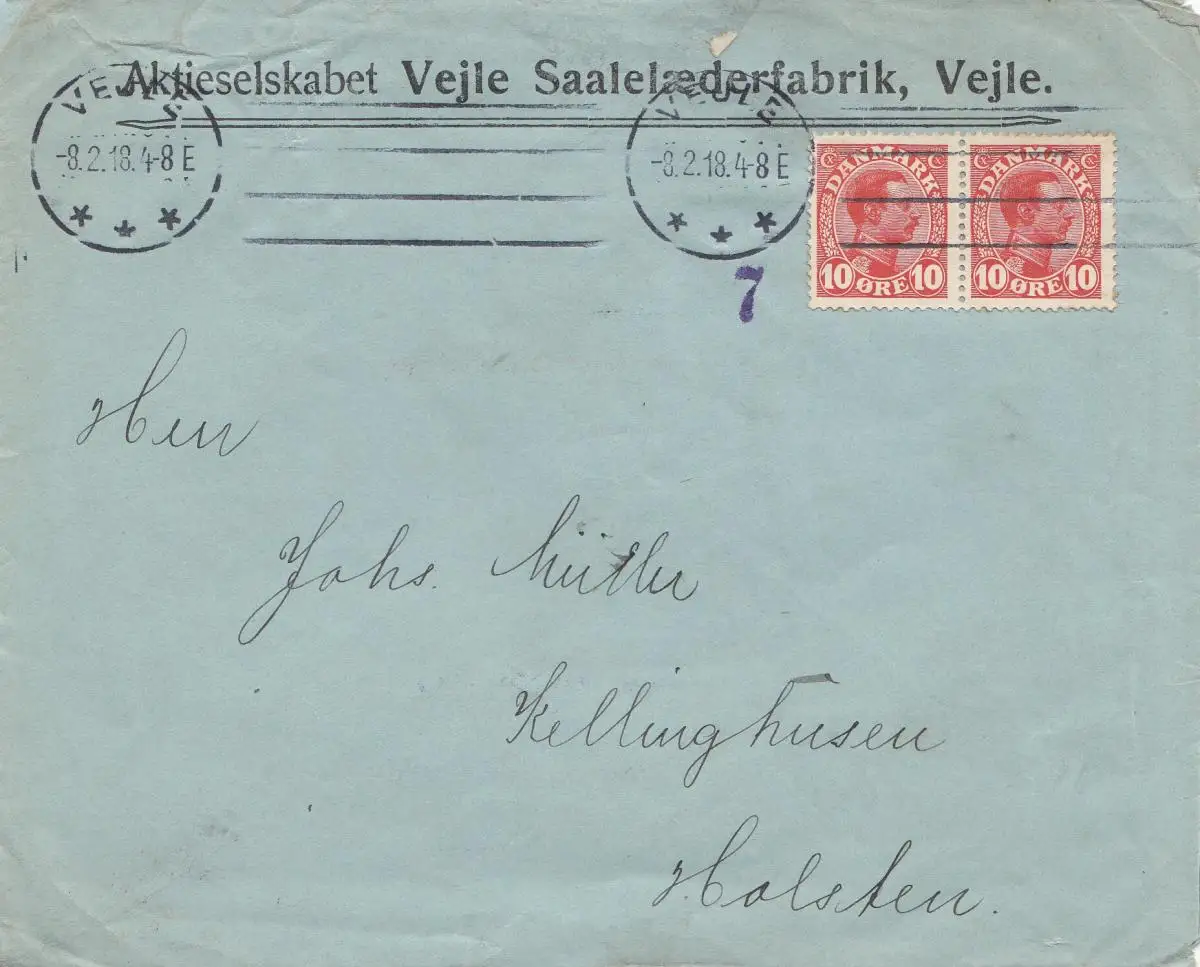 Aktieselskabet Vejle Saalelæderfabrik, Vejle.
VEJLE
-8.2.18.4-8 E
VEJLE
-8.2.18.4-8 E
DANMARK
10 ØRE 10
DANMARK
10 ØRE 10
7
Herr
Johs. Müller
Kellinghusen
Holsten.